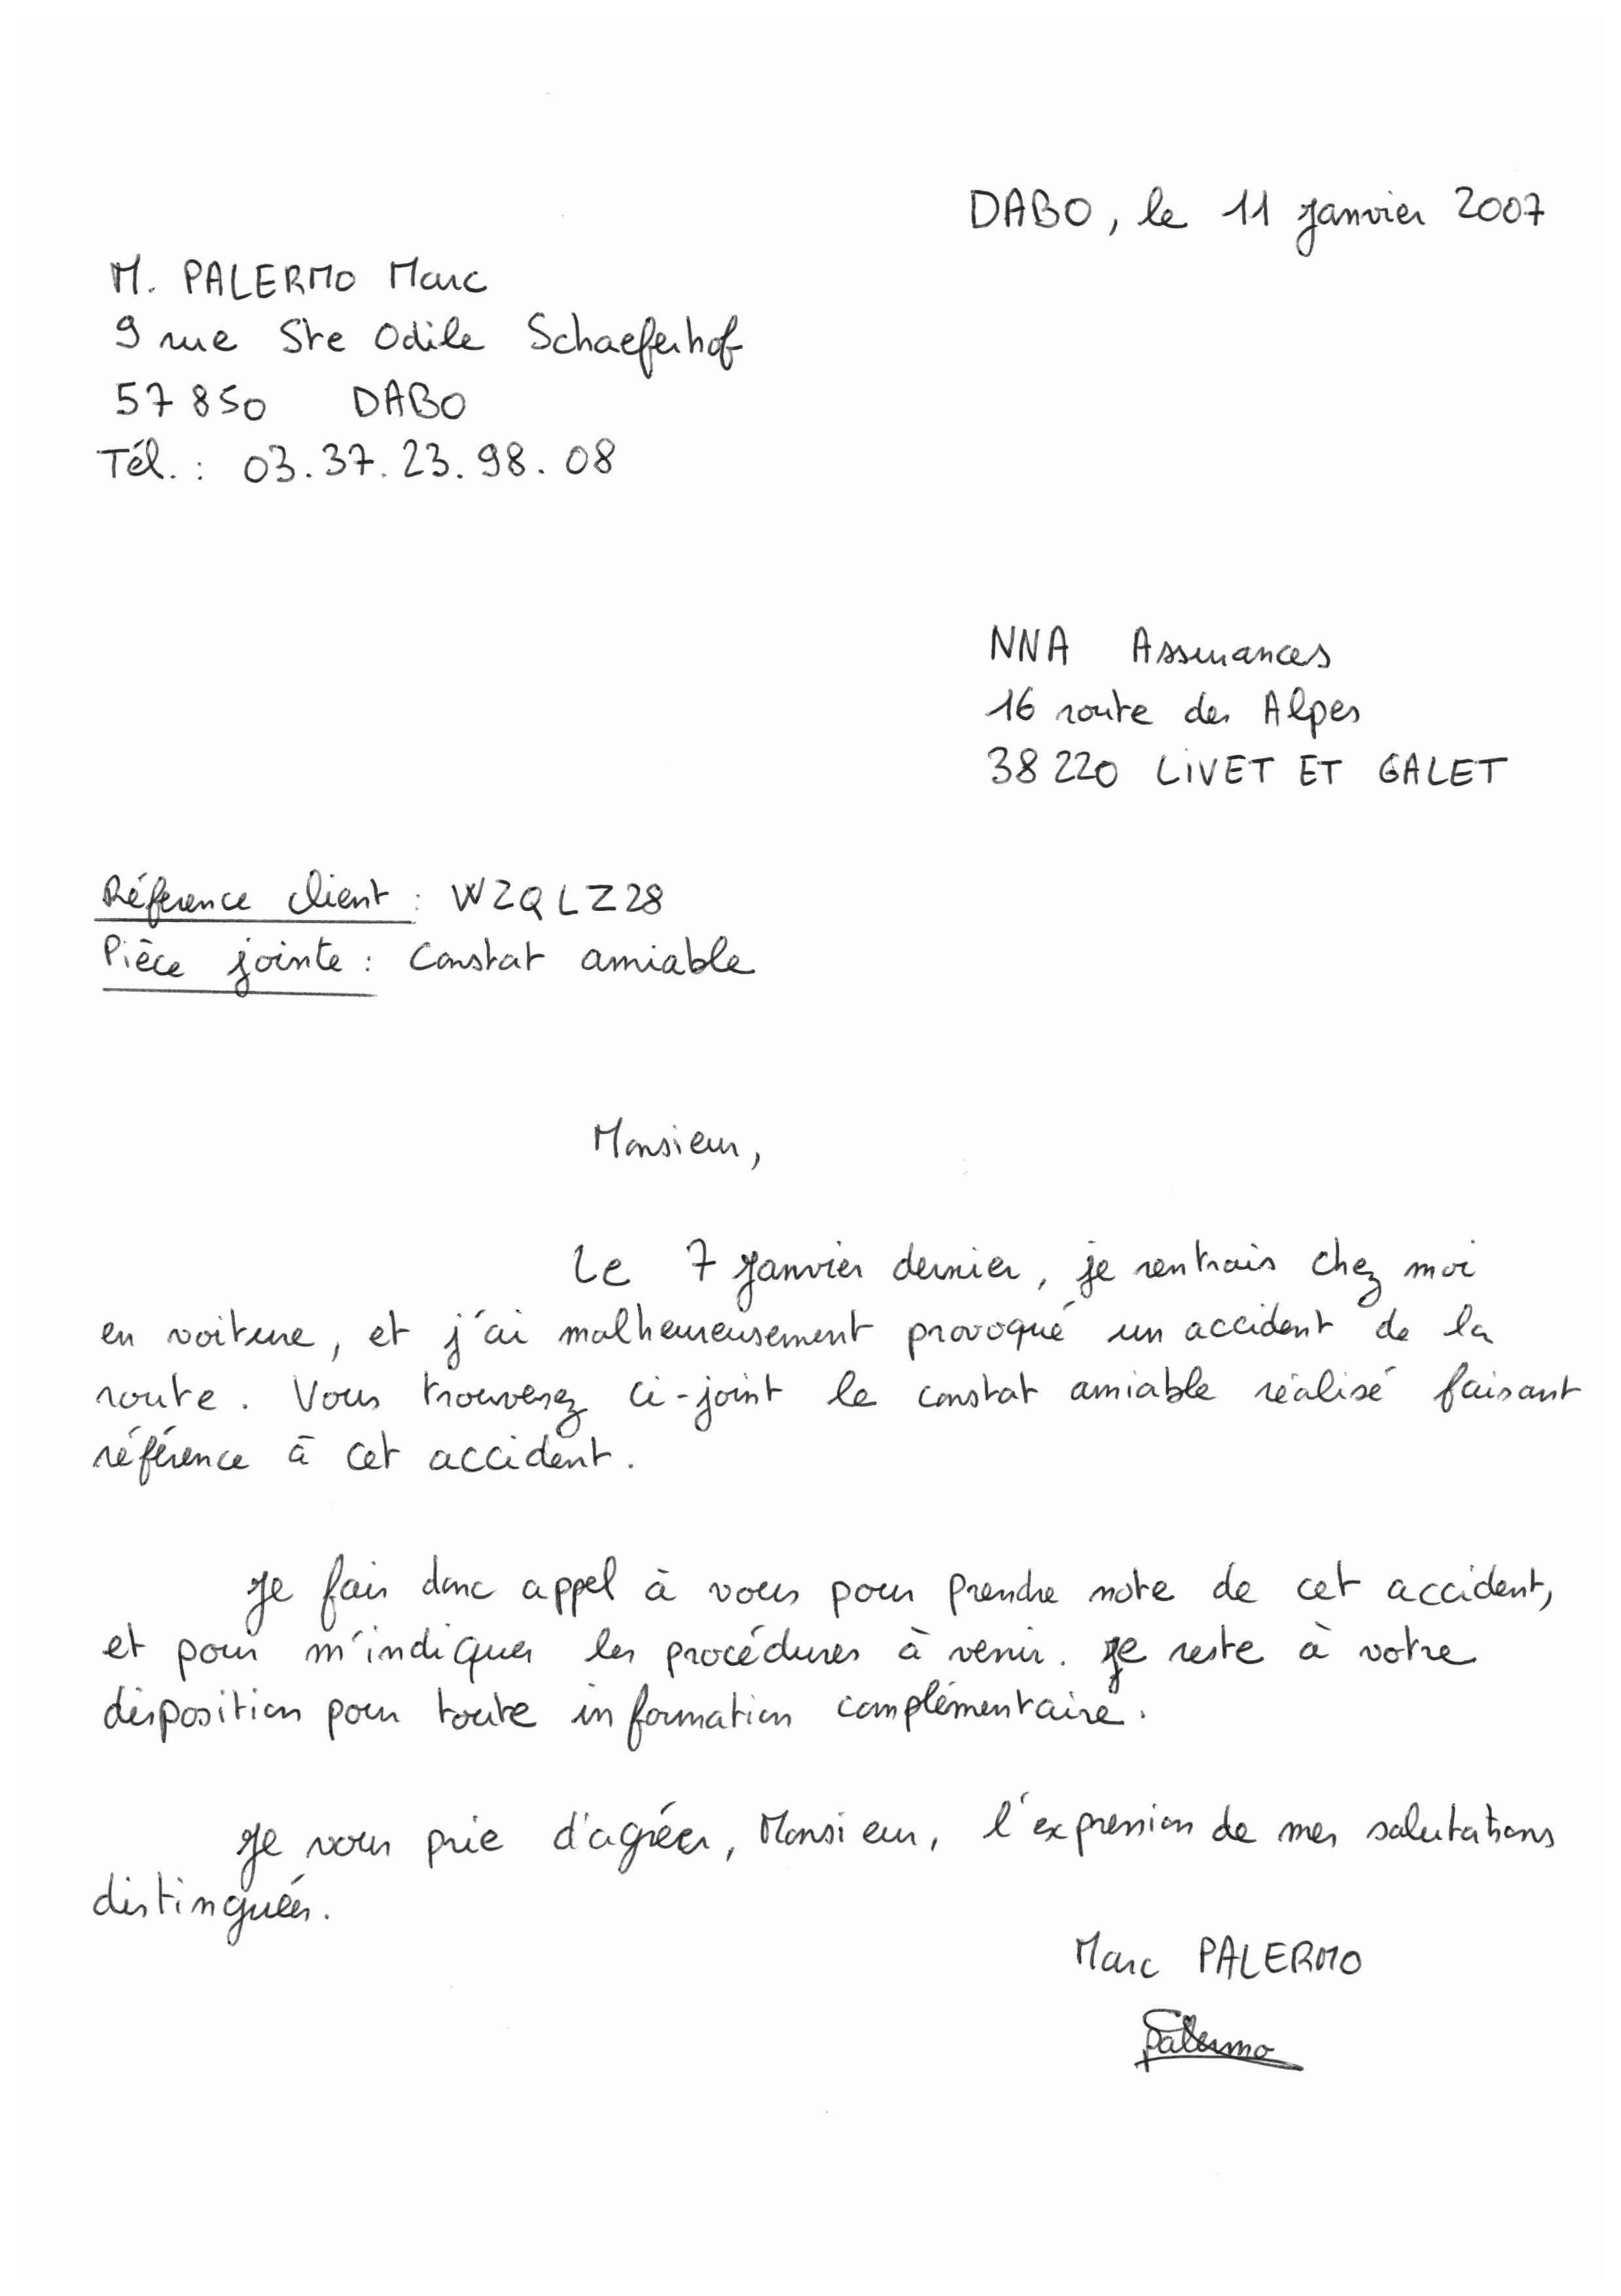 DABO, le 11 janvier 2007
M. PALERMO Marc
9 rue Ste Odile Schaeferhof
57 850 DABO
Tél. : 03.37.23.98.08
NNA Assurances
16 route des Alpes
38 220 LIVET ET GALET
Réference client : WZQLZ28
Pièce jointe : Constat amiable
Monsieur,
Le 7 janvier dernier, je rentrais chez moi
en voiture, et j'ai malheureusement provoqué un accident de la
route. Vous trouverez ci-joint le constat amiable réalisé faisant
référence à cet accident.
Je fais donc appel à vous pour prendre note de cet accident,
et pour m'indiquer les procédures à venir. Je reste à votre
disposition pour toute information complémentaire.
Je vous prie d'agréer, Monsieur, l'expression de mes salutations
distinguées.
Marc PALERMO
Palermo